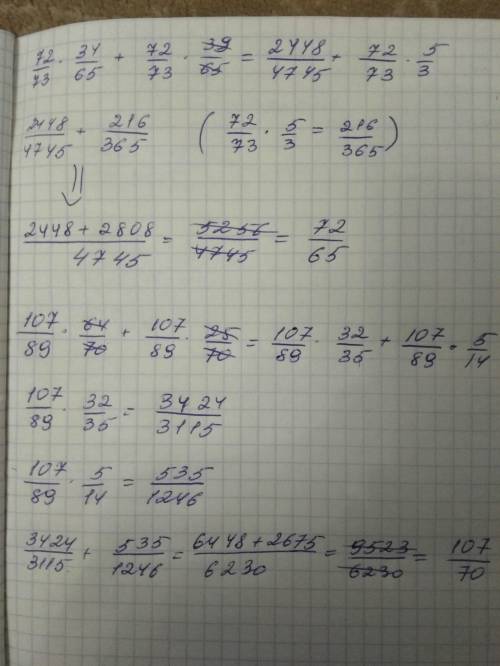 72/73 · 34/65 + 72/73 · 39/65 = 2448/4745 + 72/73 · 5/3
2448/4745 + 216/365 ( 72/73 · 5/3 = 216/365 )
⇓
2448 + 2808/4745 = 5256/4745 = 72/65
107/89 · 64/70 + 107/89 · 25/70 = 107/89 · 32/35 + 107/89 · 5/14
107/89 · 32/35 = 3424/3115
107/89 · 5/14 = 535/1246
3424/3115 + 535/1246 = 6448+2675/6230 = 9523/6230 = 107/70